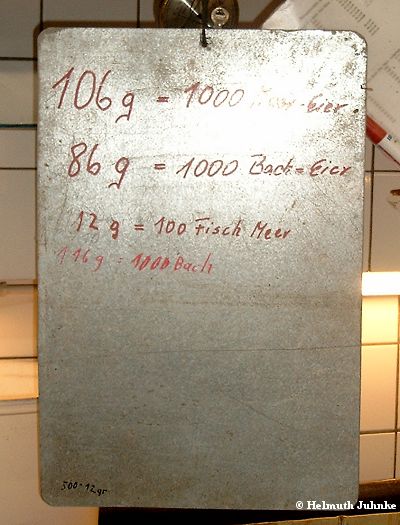 106 g = 1000 Eier
86 g = 1000 Bach=Eier
12 g = 100 Fisch Meer
116 g = 1000 Bach
500=12gr
© Helmuth Juhnke